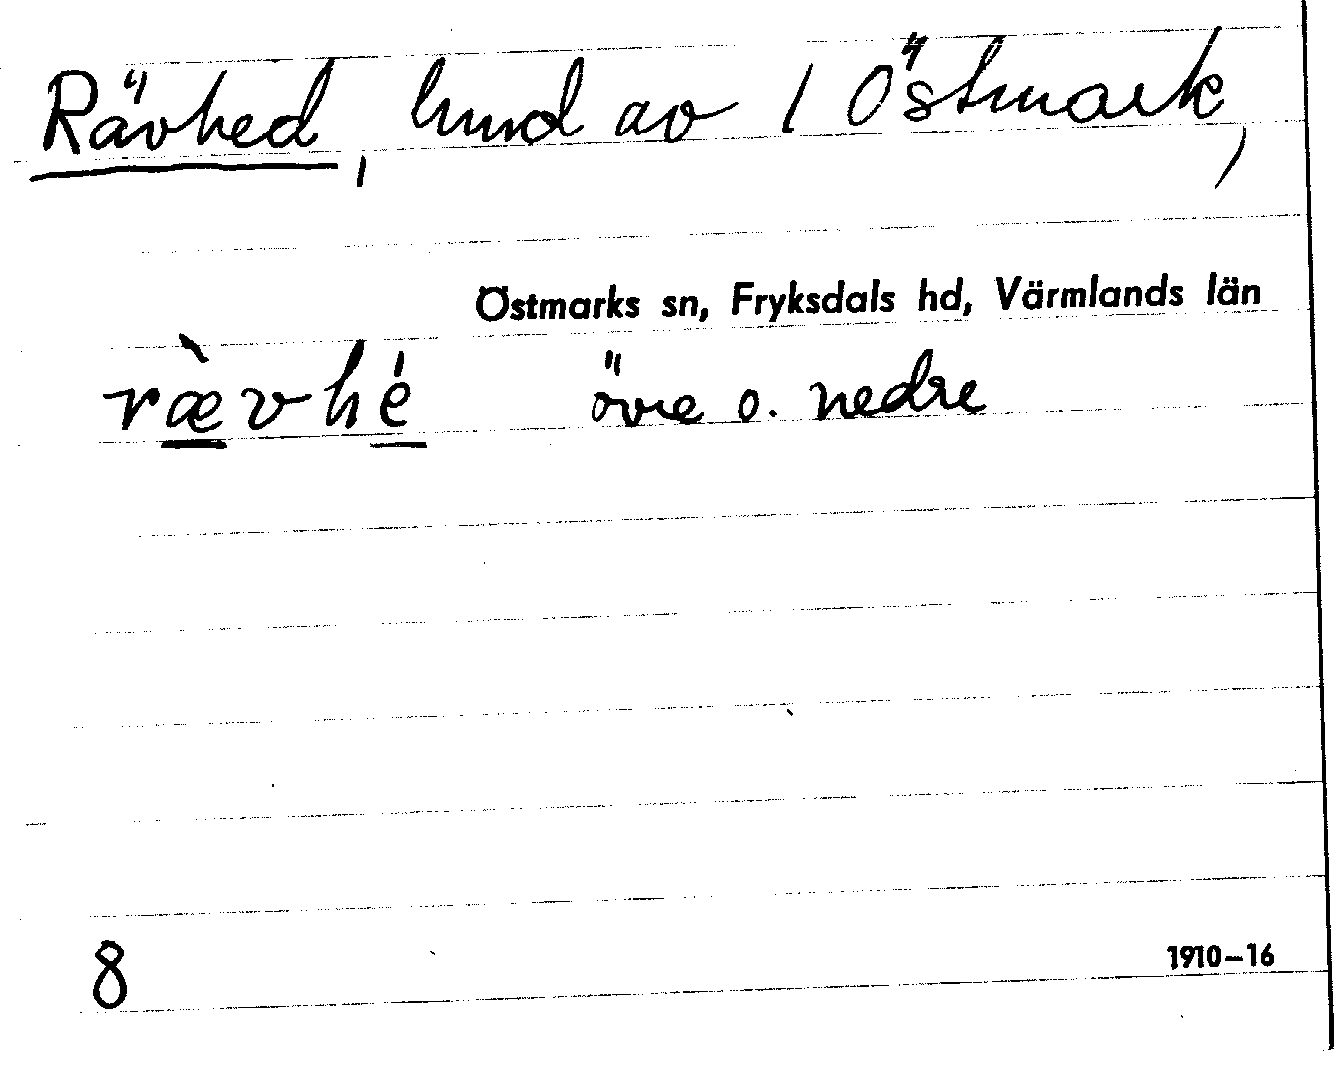 Rävhed, hmd av 1 Östmark,
Östmarks sn, Fryksdals hd, Värmlands län
rævhe övre o. nedre
8
1910–16